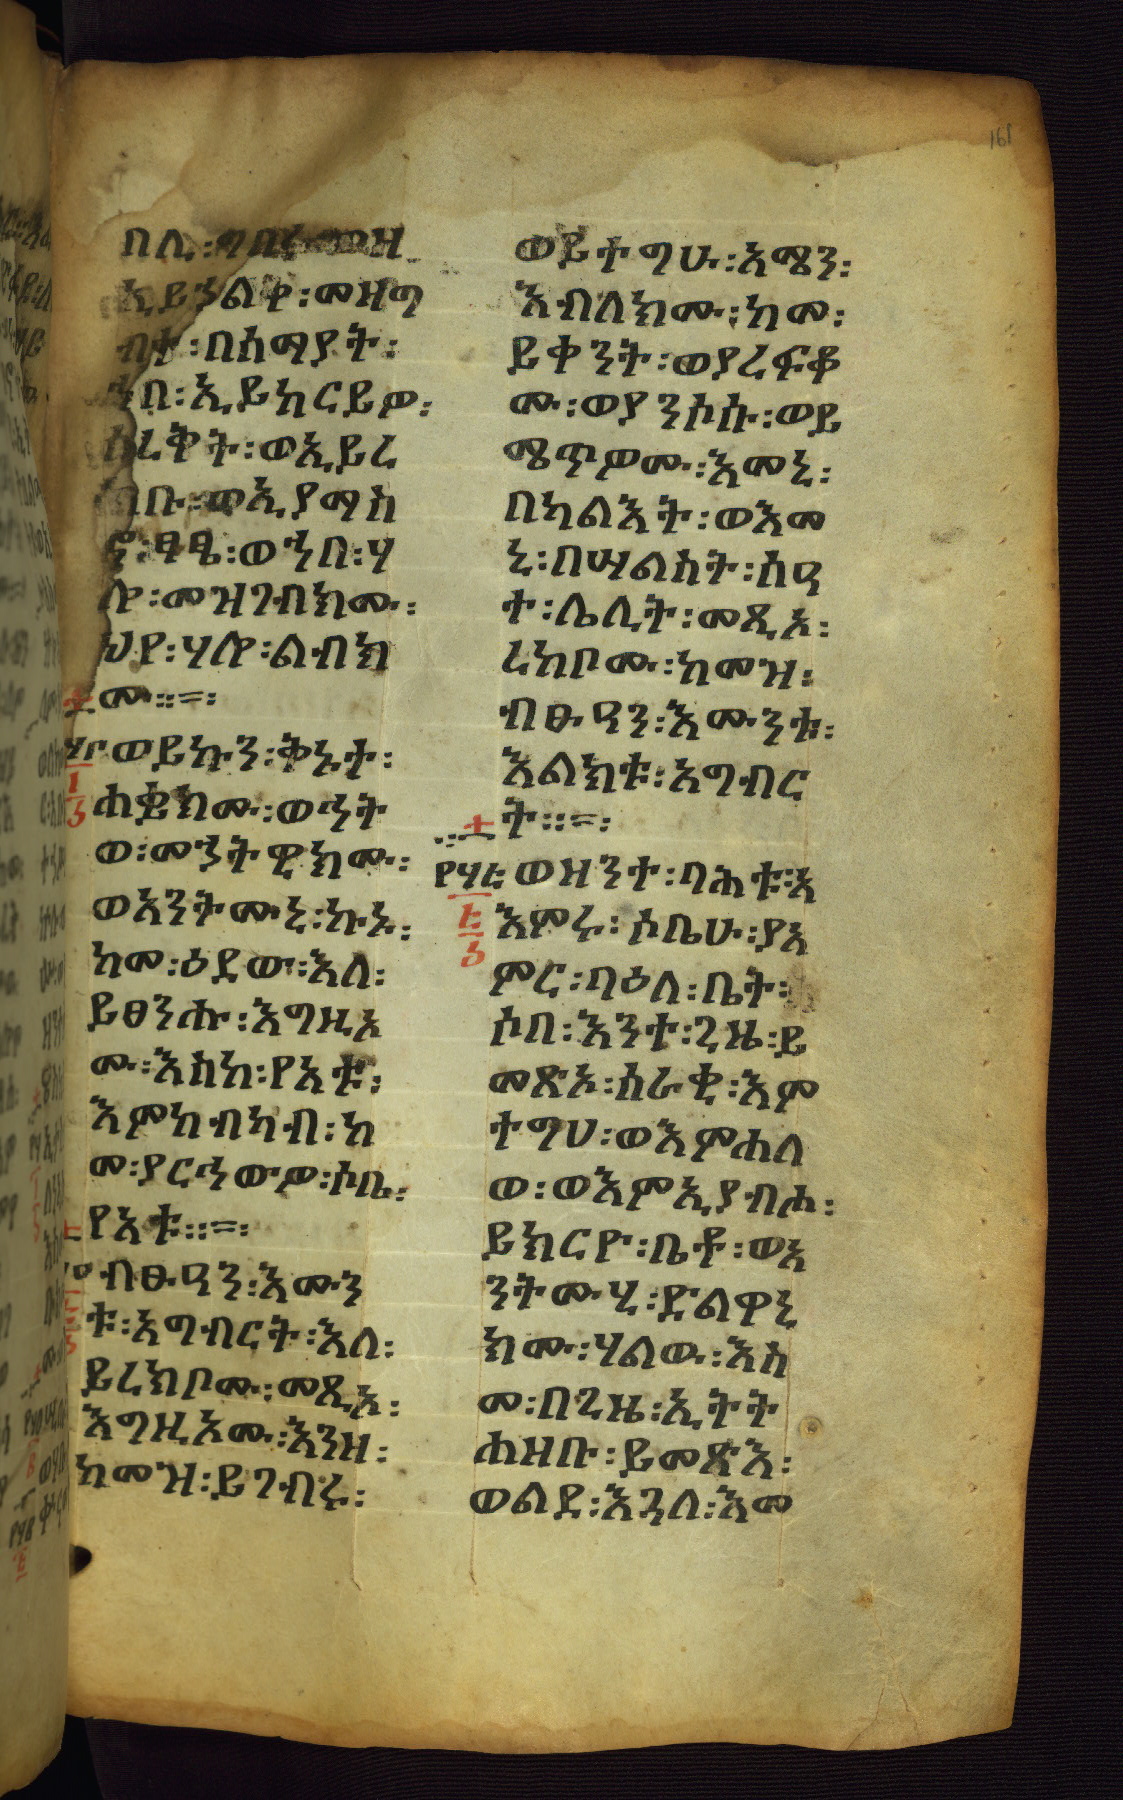 161
በሊ፡ግበሩ፡መዝ
ኢይኀልቀ፡መዝግ
ብተ፡በሰማያት፡
ኀበ፡ኢይክርይዎ፡
ሰረቅት፡ወኢይረ
ክቡ፡ወኢያማስ
ኖ፡ፃፄ፡ወኀበ፡ሃ
ሎ፡መዝገብክሙ፡
ህየ፡ሃሎ፡ልብክ
ሙ።=፡
ወይኩን፡ቅኑት፡
ሐቌክሙ፡ወኀት
ወ፡መኀትዊክሙ፡
ወአንትሙኒ፡ኩኑ፡
ከመ፡ዕደው፡እለ፡
ይፀንሑ፡እግዚአ
ሙ፡እስከ፡የአቱ፡
እምከብካብ፡ከ
መ፡ያርኅውዎ፡ሶቤ፡
የአቱ።=፡
ብፁዓን፡እሙን
ቱ፡አግብርት፡እለ፡
ይረክቦሙ፡መጺአ፡
እግዚአሙ፡እንዘ፡
ከመዝ፡ይገብሩ፡
ወይተግሁ፡አሜን፡
እብለክሙ፡ከመ፡
ይቀንት፡ወያረፍቆ
ሙ፡ወያንሶሱ፡ወይ
ሜጥዎሙ፡እመኒ፡
በካልእት፡ወእመ
ኒ፡በሣልስት፡ሰዓ
ተ፡ሌሊት፡መጺአ፡
ረከቦሙ፡ከመዝ፡
ብፁዓን፡እሙንቱ፡
እልክቱ፡አግብር
ት።=፡
ወዘንተ፡ባሕቱ፡አ
እምሩ፡ሶቤሁ፡ያአ
ምር፡ባዕለ፡ቤት፡
ሶበ፡እንተ፡ጊዜ፡ይ
መጽኦ፡ሰራቂ፡እም
ተግህ፡ወእምሐለ
ወ፡ወእምኢያብሐ፡
ይክርዮ፡ቤቶ፡ወአ
ንትሙሂ፡ድልዋኒ
ክሙ፡ሃልዉ፡እስ
መ፡በጊዜ፡ኢትት
ሐዘቡ፡ይመጽእ፡
ወልደ፡እጓለ፡እመ